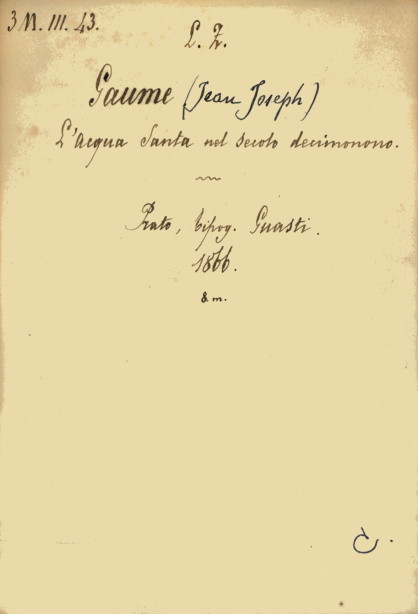 3 M. III. 43.
L. Z.
Gaume (Jean Joseph)
L'Acqua Santa nel secolo decimonono.
Prato, tipog. Guasti.
1866.
8. m.
C.